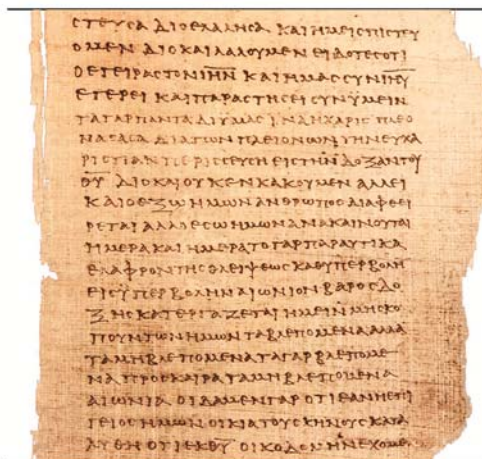 ϹΤΕΥϹΑ ΔΙΟ ΕΛΑΛΗϹΑ ΚΑΙ ΗΜΕΙϹ ΠΙϹΤΕΥ
ΟΜΕΝ ΔΙΟ ΚΑΙ ΛΑΛΟΥΜΕΝ ΕΙΔΟΤΕϹ ΟΤΙ
Ο ΕΓΕΙΡΑϹ ΤΟΝ Ι̅Η̅Ν̅ ΚΑΙ ΗΜΑϹ ϹΥΝ Ι̅Η̅Υ̅
ΕΓΕΡΕΙ ΚΑΙ ΠΑΡΑϹΤΗϹΕΙ ϹΥΝ ΫΜΕΙΝ
ΤΑ ΓΑΡ ΠΑΝΤΑ ΔΙ ΥΜΑϹ ΙΝΑ Η ΧΑΡΙϹ ΠΛΕΟ
ΝΑϹΑϹΑ ΔΙΑ ΤΩΝ ΠΛΕΙΟΝΩΝ ΤΗΝ ΕΥΧΑ
ΡΙϹΤΙΑΝ ΠΕΡΙϹϹΕΥϹΗ ΕΙϹ ΤΗΝ ΔΟΞΑΝ ΤΟΥ
Θ̅Υ̅ ΔΙΟ ΚΑΙ ΟΥΚ ΕΝΚΑΚΟΥΜΕΝ ΑΛΛ ΕΙ
ΚΑΙ Ο ΕΞΩ ΗΜΩΝ ΑΝΘΡΩΠΟϹ ΔΙΑΦΘΕΙ
ΡΕΤΑΙ ΑΛΛ Ο ΕϹΩ ΗΜΩΝ ΑΝΑΚΑΙΝΟΥΤΑΙ
ΗΜΕΡΑ ΚΑΙ ΗΜΕΡΑ ΤΟ ΓΑΡ ΠΑΡΑΥΤΙΚΑ
ΕΛΑΦΡΟΝ ΤΗϹ ΘΛΕΙΨΕΩϹ ΚΑΘ ΥΠΕΡΒΟΛΗ
ΕΙϹ ΥΠΕΡΒΟΛΗΝ ΑΙΩΝΙΟΝ ΒΑΡΟϹ ΔΟ
ΞΗϹ ΚΑΤΕΡΓΑΖΕΤΑΙ ΗΜΕΙΝ ΜΗ ϹΚΟ
ΠΟΥΝΤΩΝ ΗΜΩΝ ΤΑ ΒΛΕΠΟΜΕΝΑ ΑΛΛΑ
ΤΑ ΜΗ ΒΛΕΠΟΜΕΝΑ ΤΑ ΓΑΡ ΒΛΕΠΟΜΕ
ΝΑ ΠΡΟϹΚΑΙΡΑ ΤΑ ΜΗ ΒΛΕΠΟΜΕΝΑ
ΑΙΩΝΙΑ ΟΙΔΑΜΕΝ ΓΑΡ ΟΤΙ ΕΑΝ Η ΕΠΙ
ΓΕΙΟϹ ΗΜΩΝ ΟΙΚΙΑ ΤΟΥ ϹΚΗΝΟΥϹ ΚΑΤΑ
ΛΥΘΗ ΟΤΙ ΕΚ Θ̅Υ̅ ΟΙΚΟΔΟΜΗΝ ΕΧΟΜΕ